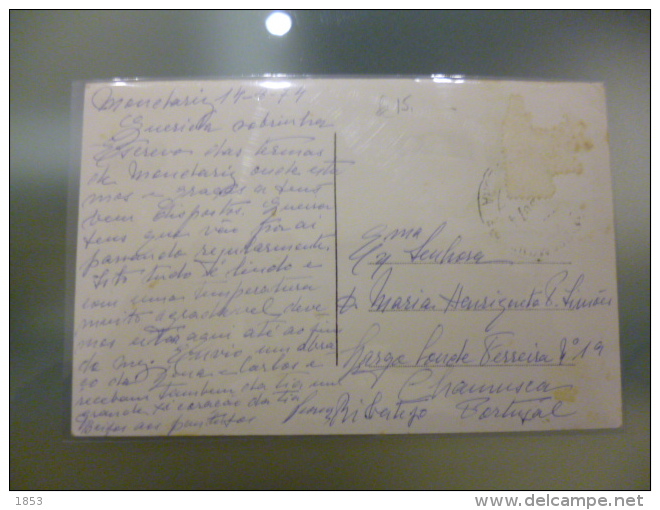 Mondariz 14-
Querida sobrinha
Escrevo das termas
de Mondariz onde esta
mos e graças a Deus
bem dispostos. 
que vão por aí
passando regularmente.
Isto tudo é lindo e
com uma temperatura
muito agradavel. deve
mos estar aqui até ao fim
do mez. Envio um abra
ço da e Carlos e
recebam tambem da tia um
grande, 
Beijos aos
£ 15.
Exma
Senhora
D. Maria Henriqueta P. Simões
Largo Conde Ferreira Nº 19
Chamusca
Ribatejo Portugal
1853
www.delcampe.net